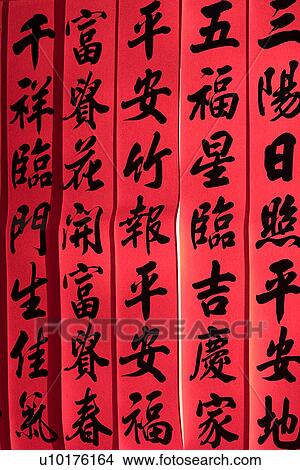 三陽日照平安地
五福星臨吉慶家
平安竹報平安福
富貴花開富貴春
千祥臨門生佳氣
Fotosearch
u10176164 www.fotosearch.com